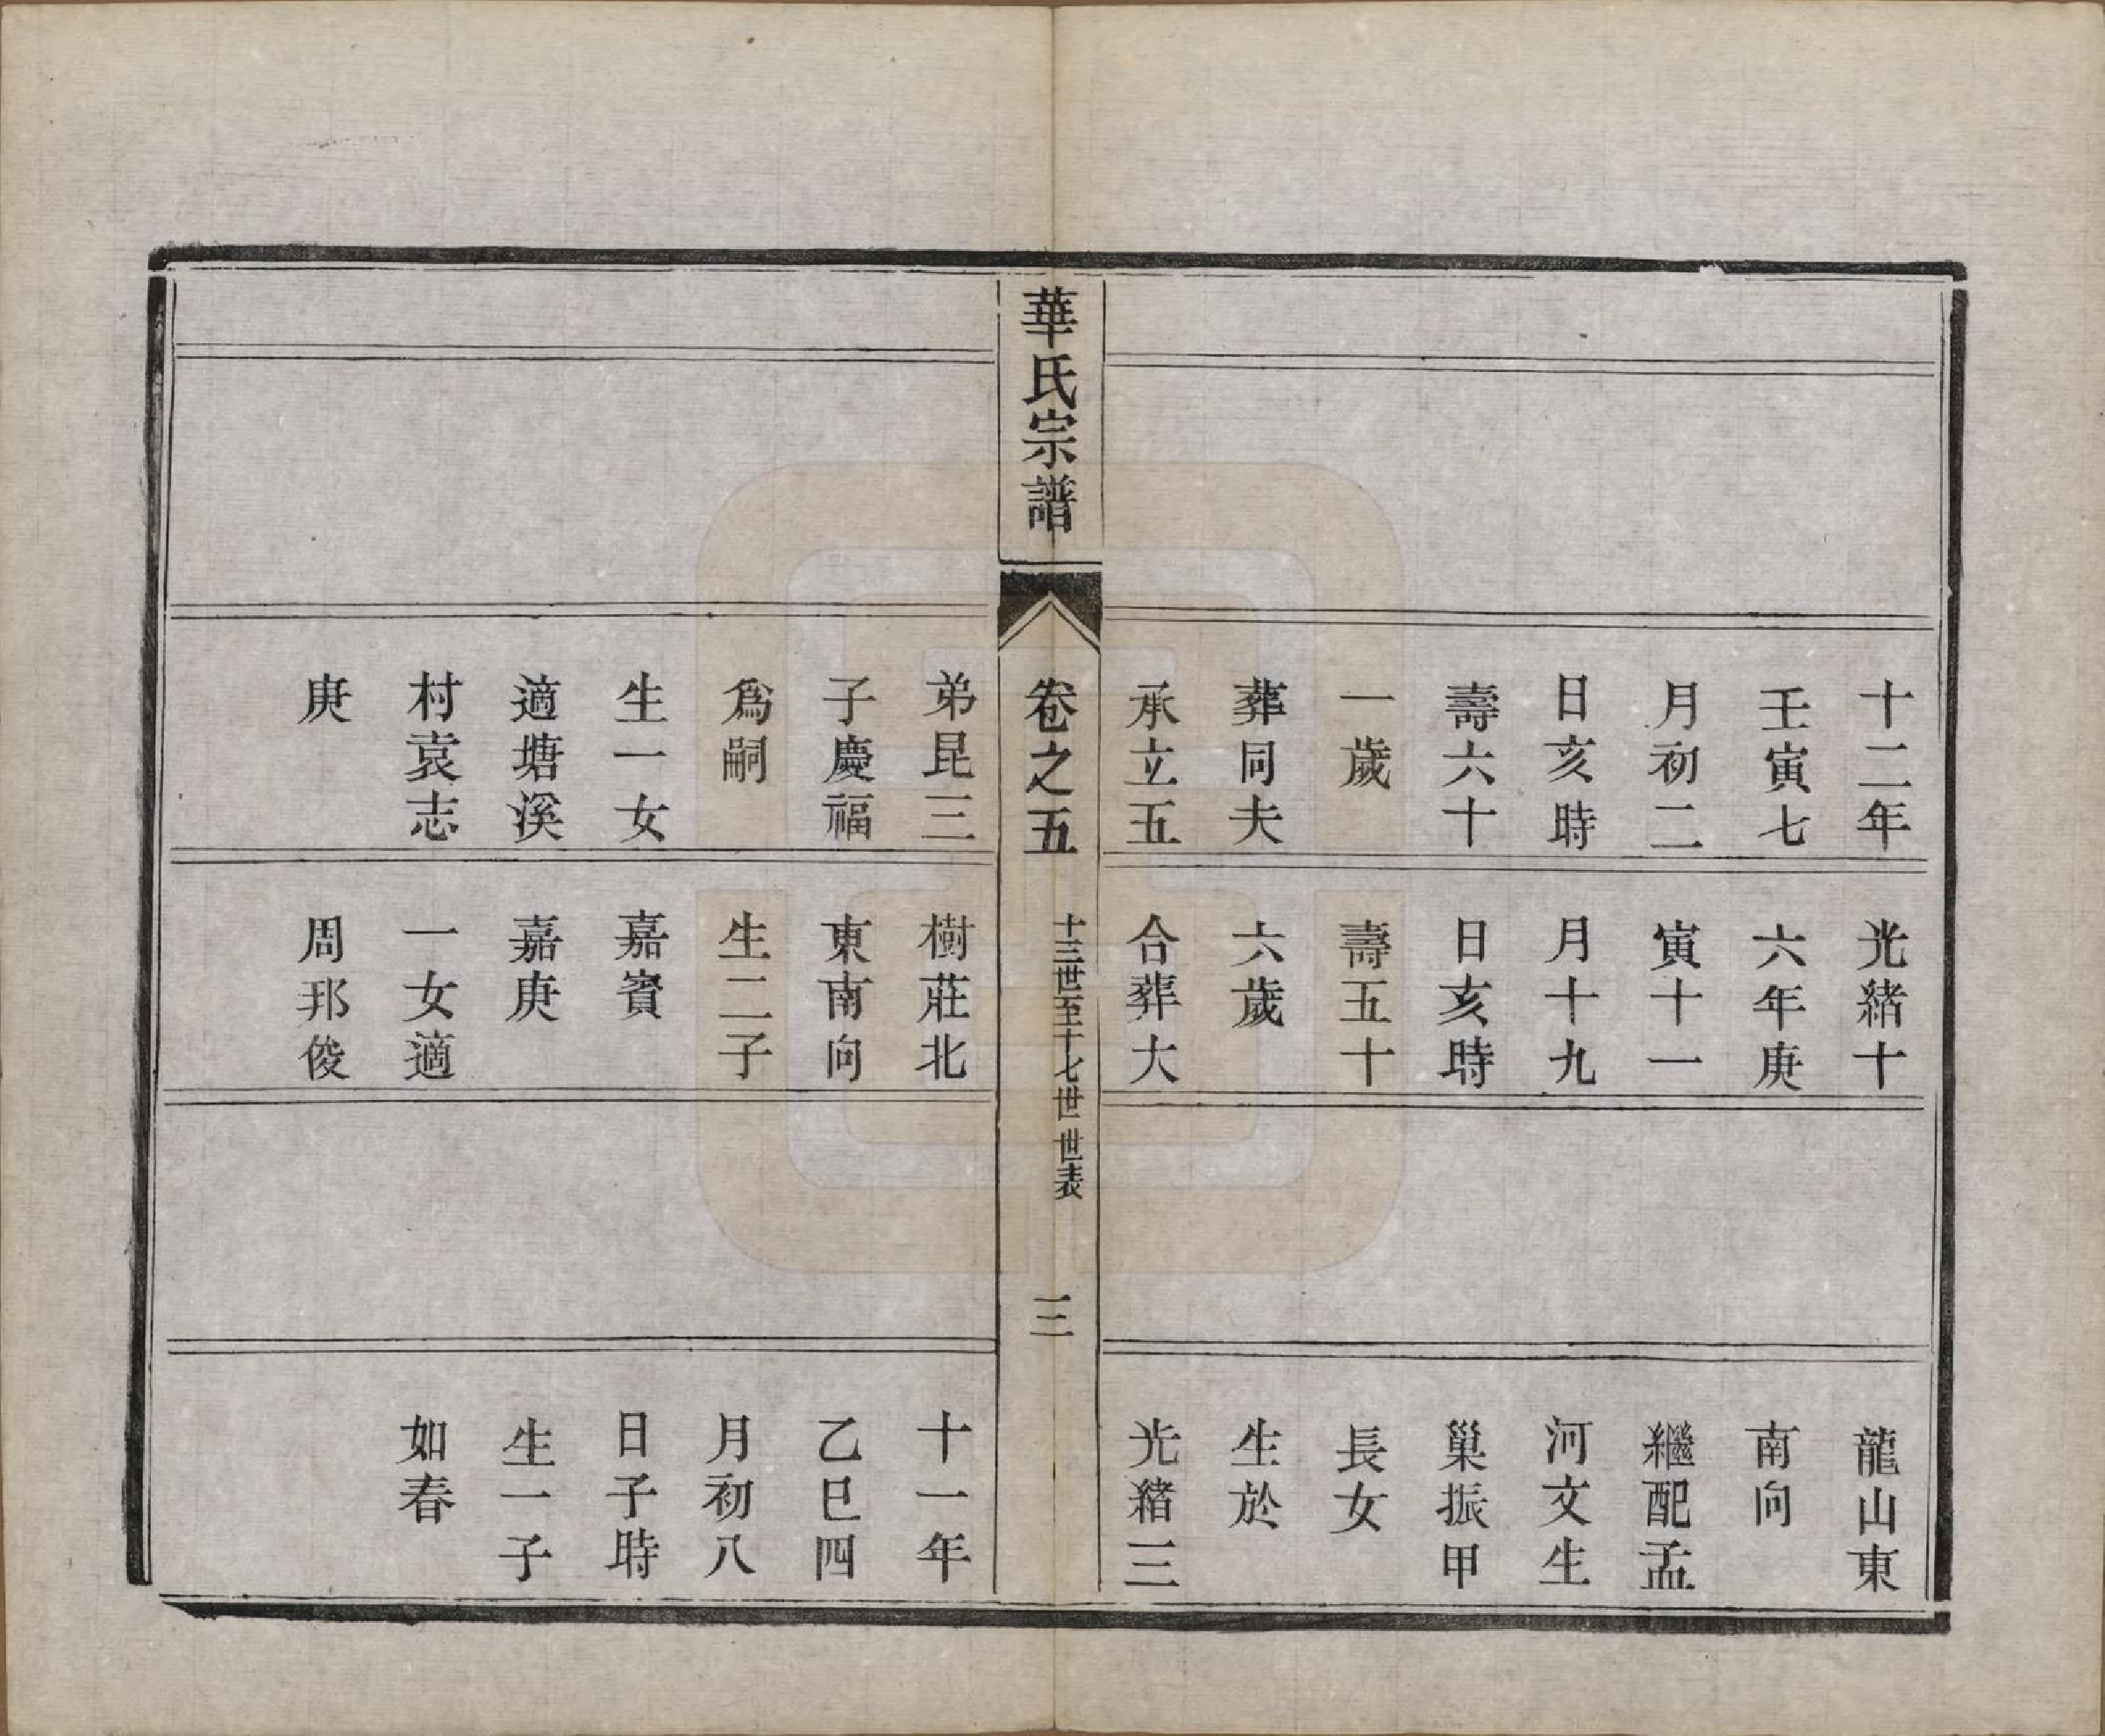 十二年
壬寅七
月初二
日亥時
壽六十
一歲
葬同夫
承立五
光緒十
六年庚
寅十一
月十九
日亥時
壽五十
六歲
合葬大
龍山東
南向
繼配孟
河文生
巢振甲
長女
生於
光緒三
華氏宗譜
卷之五
十三世至十七世世表
三
弟昆三
子慶福
爲嗣
生一女
適塘溪
村袁志
庚
樹莊北
東南向
生二子
嘉賓
嘉庚
一女適
周邦俊
十一年
乙巳四
月初八
日子時
生一子
如春